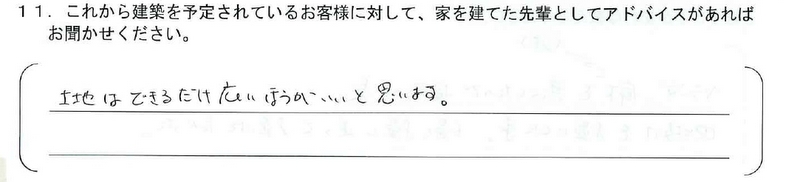 11．これから建築を予定されているお客様に対して、家を建てた先輩としてアドバイスがあれば
お聞かせください。
土地はできるだけ広いほうがいいと思います。